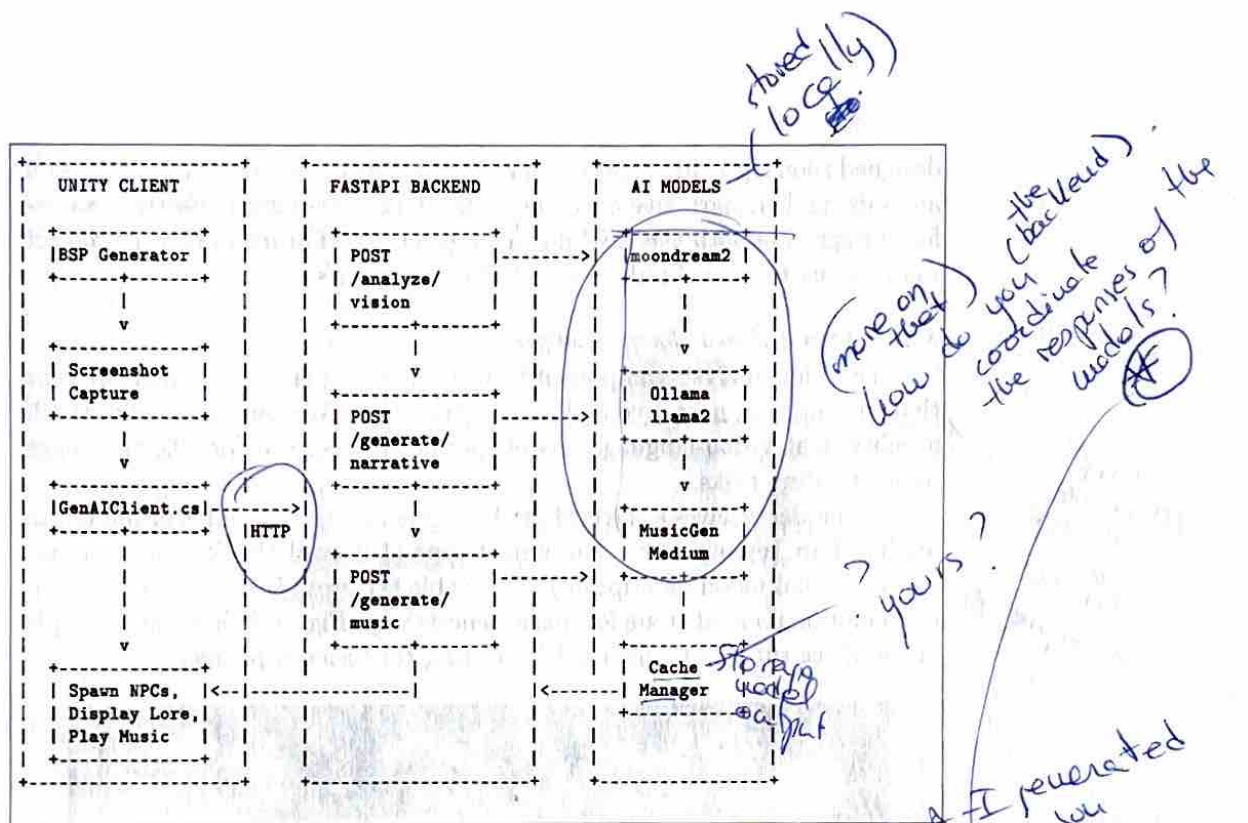 (stored
locally)
UNITY CLIENT
BSP Generator
Screenshot
Capture
GenAIClient.cs
HTTP
Spawn NPCs,
Display Lore,
Play Music
FASTAPI BACKEND
POST
/analyze/
vision
POST
/generate/
narrative
POST
/generate/
music
AI MODELS
moondream2
Ollama
llama2
MusicGen
Medium
Cache
Manager
model
output
? yours?
(more on
that)
how do you (the backend)
coordinate
the responses of the
models?
generated